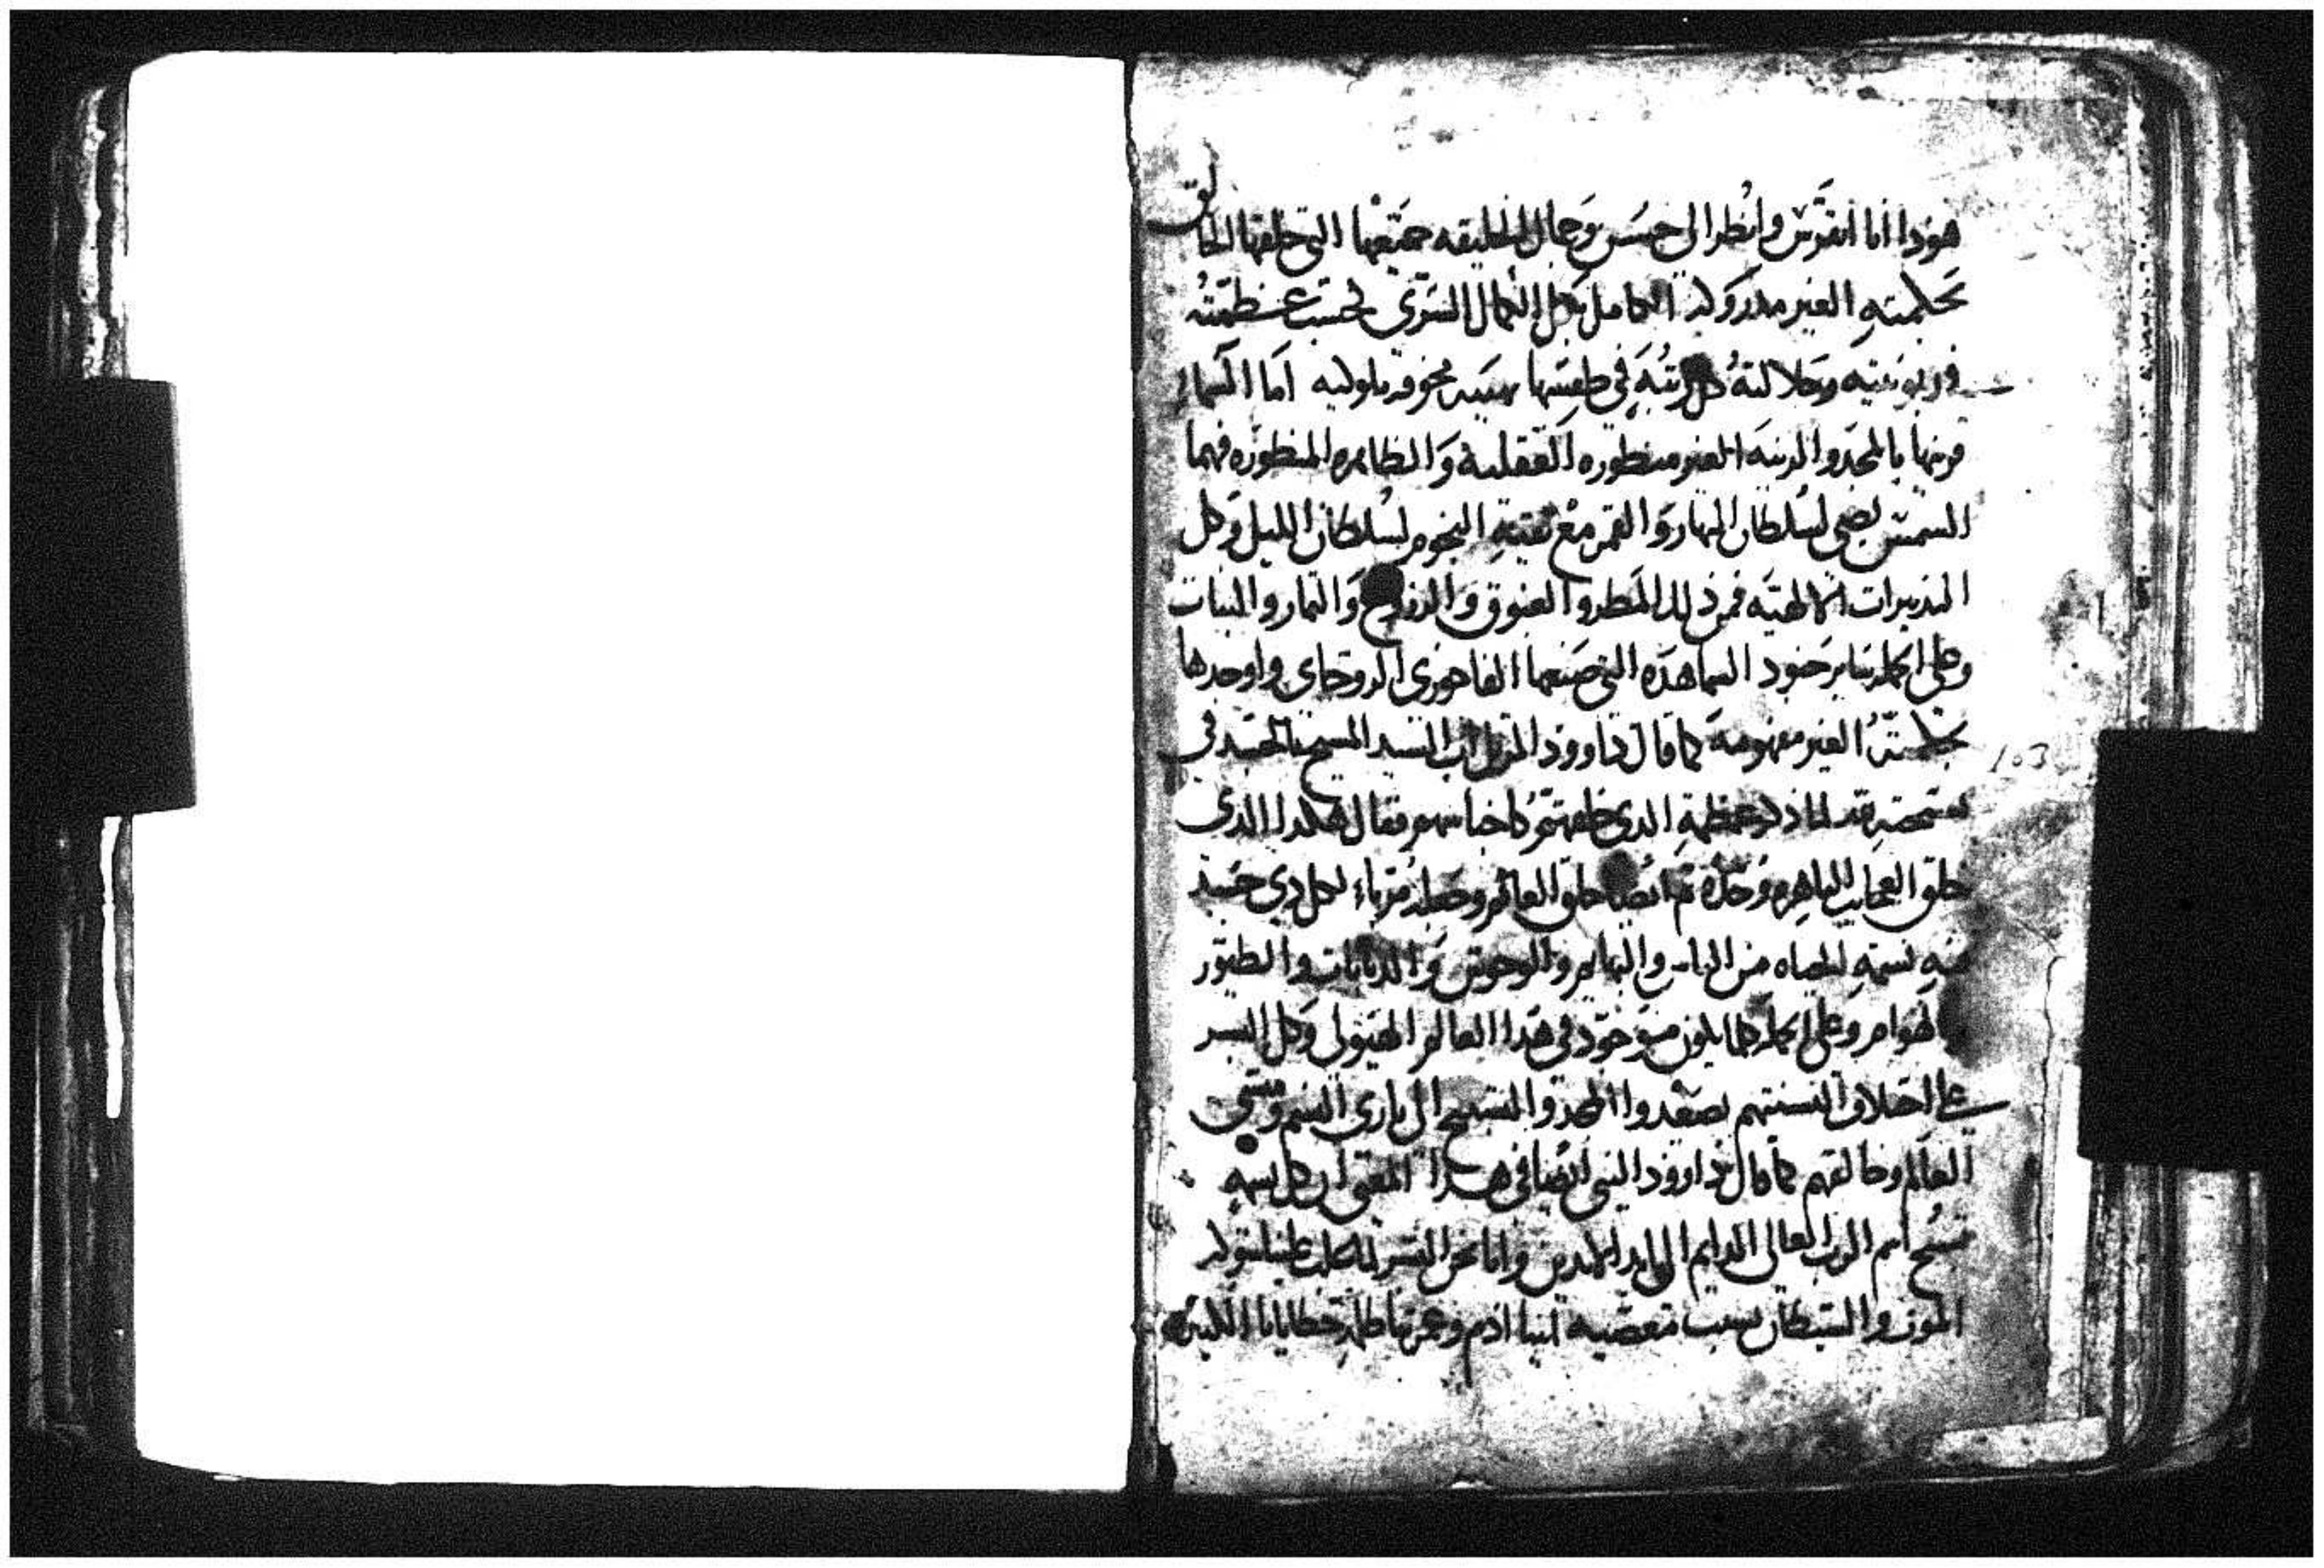 هوذا انا اتفرس وانظر الى حسن وجمال الخليقه جميعها التي خلقها الخالق
بحكمته الغير مدروكه الكامل بكل الكمال السري بحسب عظمته
وربوبيته وجلالته كل رتبه في طقسها اما السماء
فزينها بالمجد والزينه الغير منظوره العقليه والظاهره المنظوره فهما
الشمس يضي لسلطان النهار والقمر مع بقية النجوم لسلطان الليل وكل
التدبيرات فمن ذلك المطر والبروق والثمار والنبات
وعلى الجمله ساير جنود السما هذه التي صنعها الفاخوري الروحاني واوجدها
بحكمته الغير مفهومه كما قال داوود المرتل السيد المسيح بالجسد في
عظمة الذي خلقهم باجناسهم فقال هكدا الذي
خلق العجايب الباهره وحده ثم ايضا خلق العالم وجعله لكل دي جسد
فيه نسمة الحياه من الناس والبهايم والوحوش والدبابات والطيور
والهوام وعلى الجمله كلما يكون موجود في هدا العالم الهيولي وكل البشر
على اختلاف السنتهم يصعدوا المجد والتسبيح الى باري النسم
العالم وخالقهم كما قال داوود النبي ايضا في هدا المعنى ان كل نسمه
تسبح اسم الرب العالي الدايم الى ابد الابدين وانا نحن البشر
الموت والشيطان بسبب معصية ابينا ادم خطايانا الكثيره
103